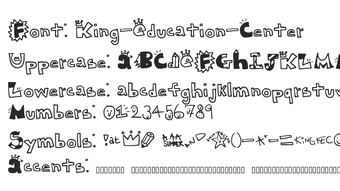 Font: King-Education-Center
Uppercase: ABCdEFGhIJKLM
Lowercase: abcdefghijklmnopqrstuv
Numbers: 0123456789
Symbols: Pat ()-+-= KINGFEC
Accents: